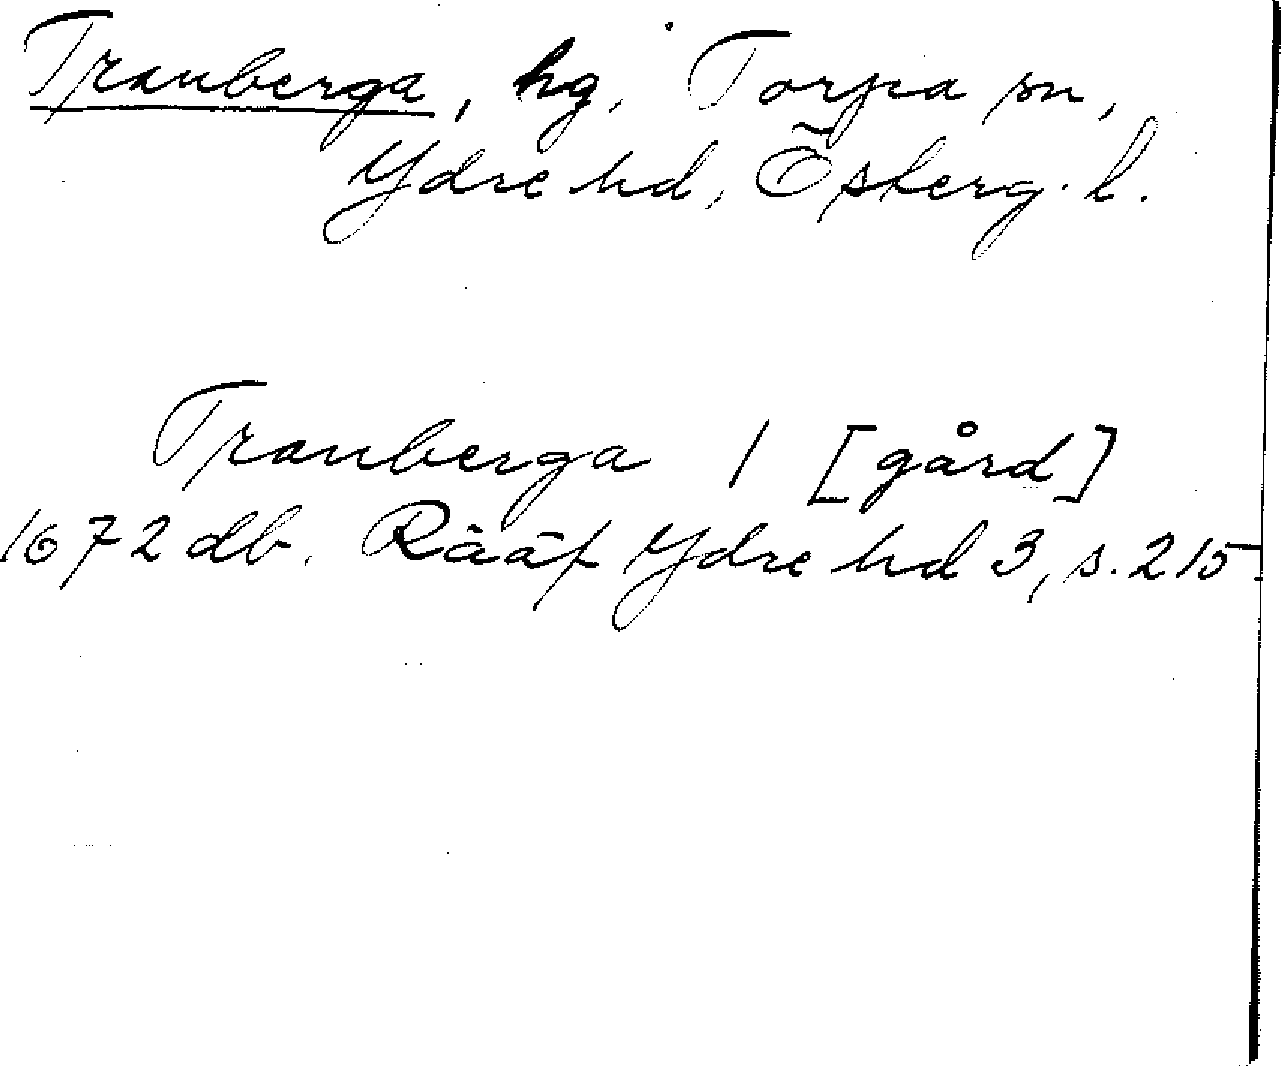 Tranberga, hg, Torpa sn,
Ydre hd, Österg. l.
Tranberga 1 [gård]
1672 db. Rääf Ydre hd 3, s. 215